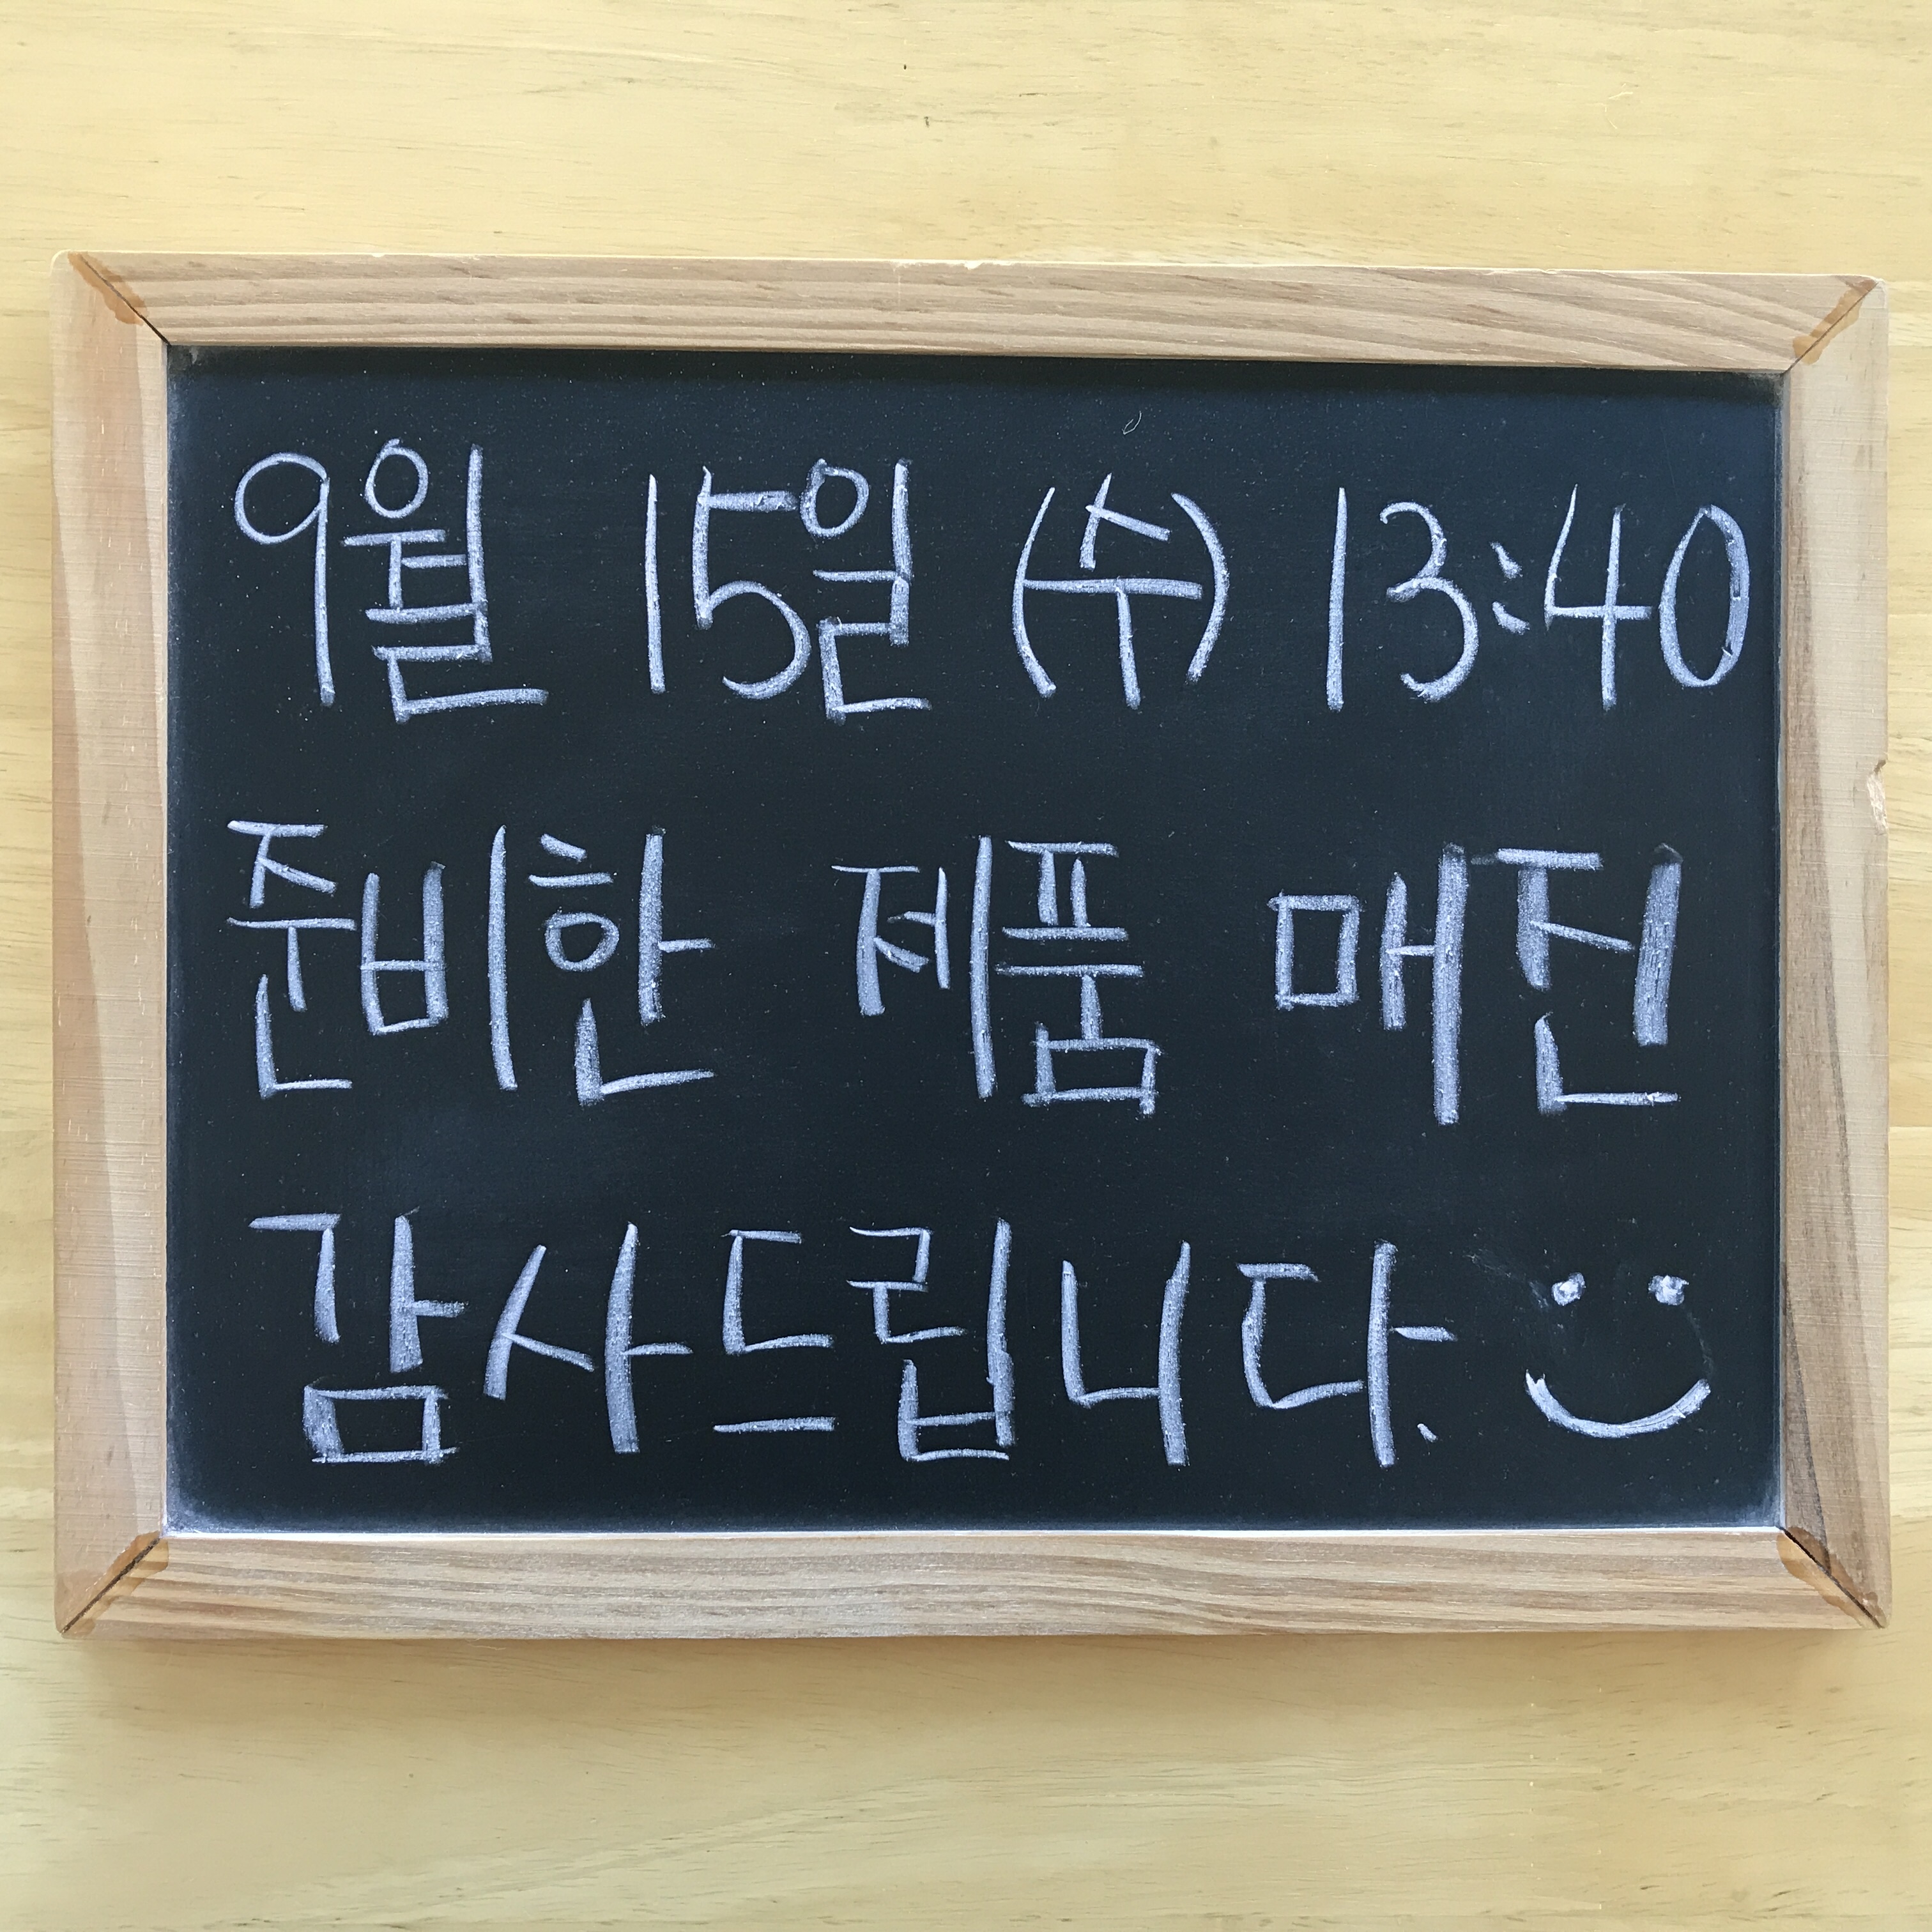 9월 15일 (수) 13:40
준비한 제품 매진
감사드립니다.